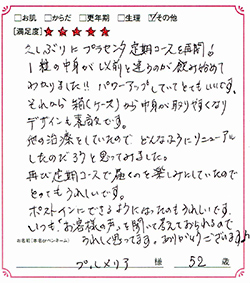 □お肌 □からだ □更年期 □生理 ☑その他
【満足度】★★★★★
久しぶりにプラセンタ定期コースを再開!
1粒の中身が以前と違うのが飲み始めて
わかりました!! パワーアップしていてとてもいいです。
それから箱(ケース)から中身が取りやすくなり
デザインも素敵です。
他の治療をしていたので、どんなふうにリニューアル
したのだろうと思ってました。
再び定期コースで届くのを楽しみにしていたので
とってもうれしいです。
ポストインにできるようになったのもうれしいです。
いつも「お客様の声」を聞いて下さっておられるので
うれしく思ってます。ありがとうございます。
お名前(本名かペンネーム)
プルメリア 様 52 歳